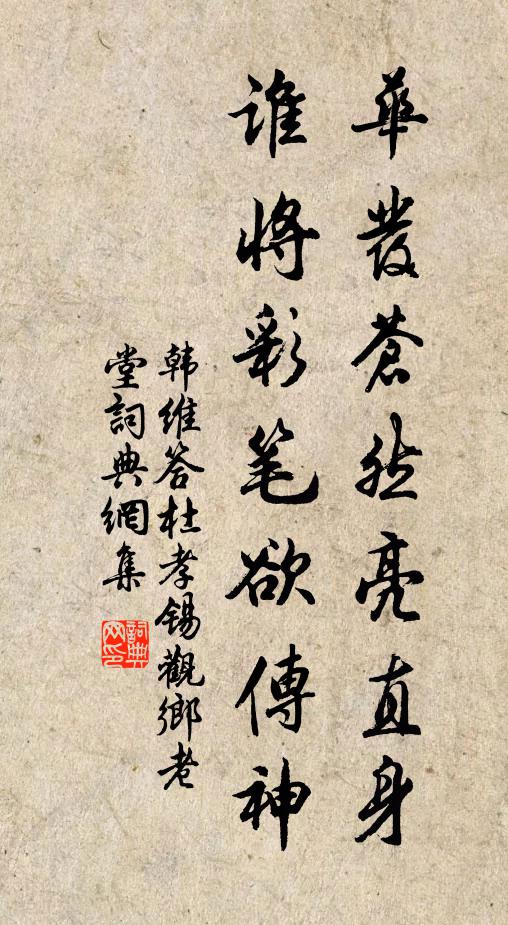 華發蒼然亮直身
誰將彩笔欲傳神
韩維答杜孝錫觀鄉老
堂詞典網集
詞典
网印